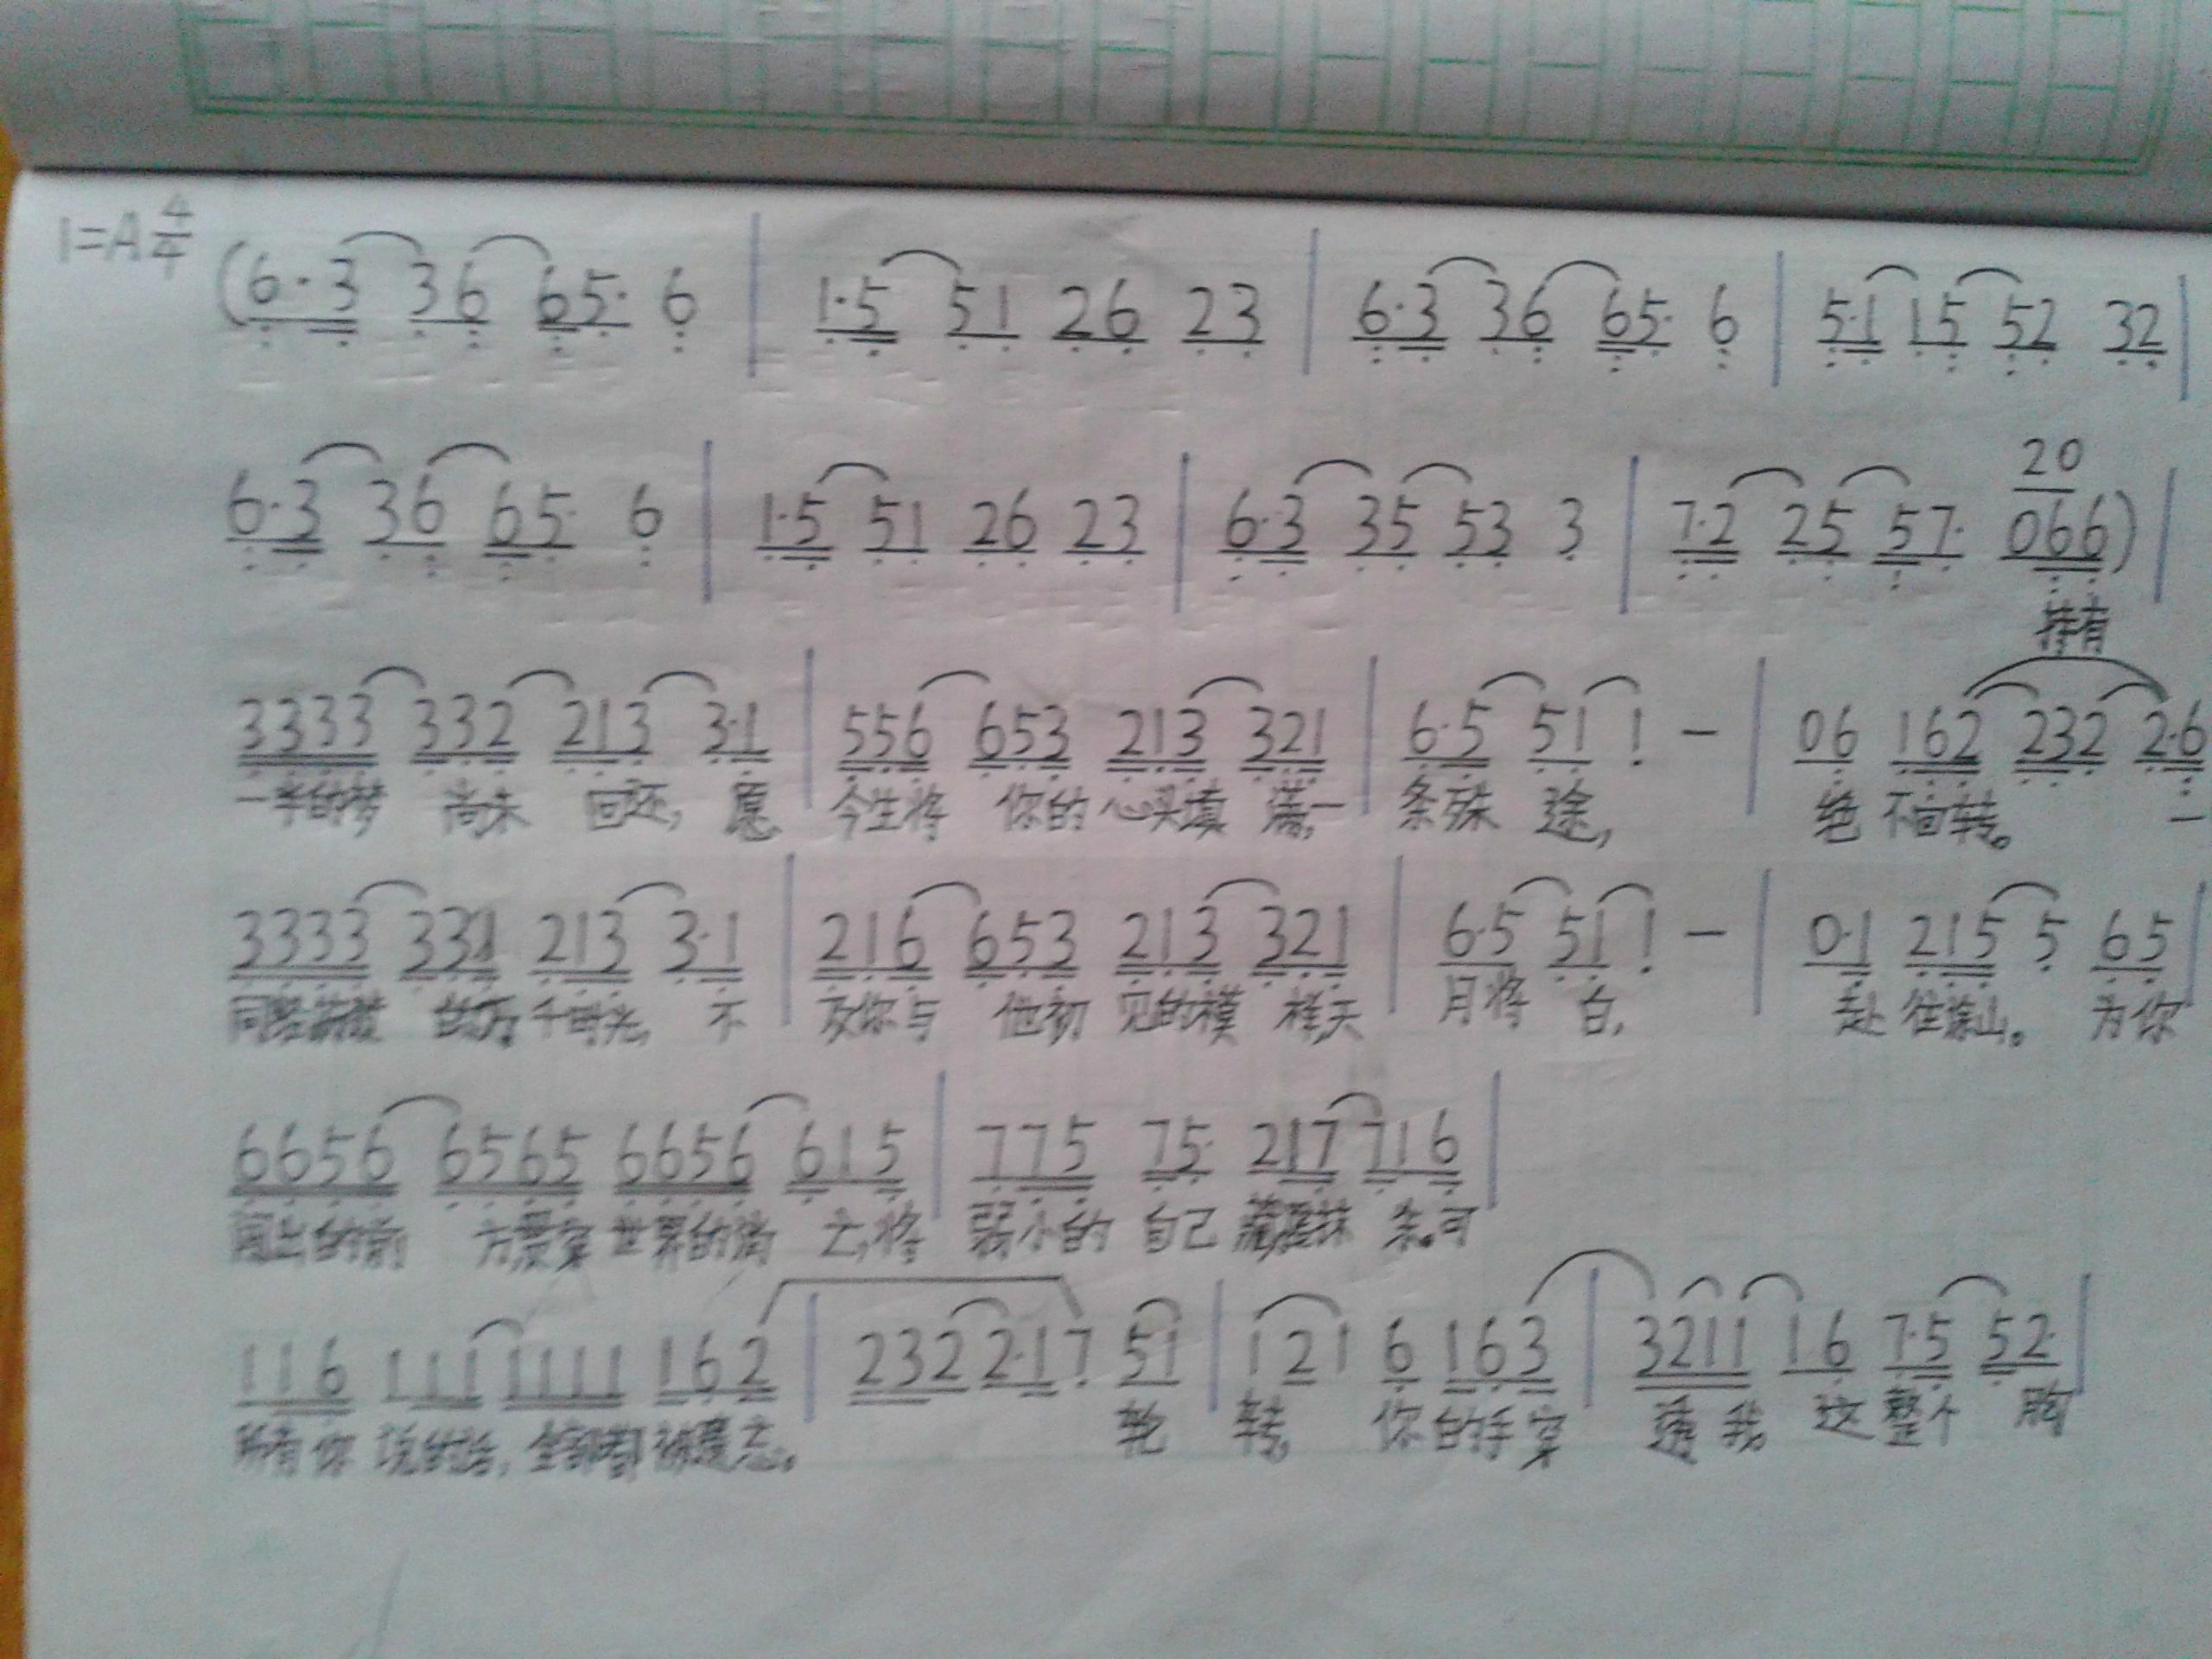 1=A 4/4 (6·3 36 65· 6 | 1·5 51 26 23 | 6·3 36 65· 6 | 5·1 15 52 32 |
20
6·3 36 65· 6 | 1·5 51 26 23 | 6·3 35 53 3 | 7·2 25 57· 066) |
拥有
3333 332 213 3·1 | 556 653 213 321 | 6·5 51 1 - | 06 162 232 2·6
一半的梦 尚未 回还, 愿 今生将 你的 心头填 满,一 条殊 途, 绝 不回转。 一
3333 331 213 3·1 | 216 653 213 321 | 6·5 51 1 - | 0·1 215 5 65 |
同 千时光, 不 及你与 他初 见的模 样,天 月将 白, 赴 往 山。 为你
6656 6565 6656 615 | 775 75· 217 716 |
的 方 世界的 之,将 弱小的 自己 可
116 111 1111 162 | 232 2·17 51 | 121 6 163 | 3211 16 7·5 52· |
所有你 说的话, 全部都被 忘。 轮 转, 你的手穿 透我 这整个 胸